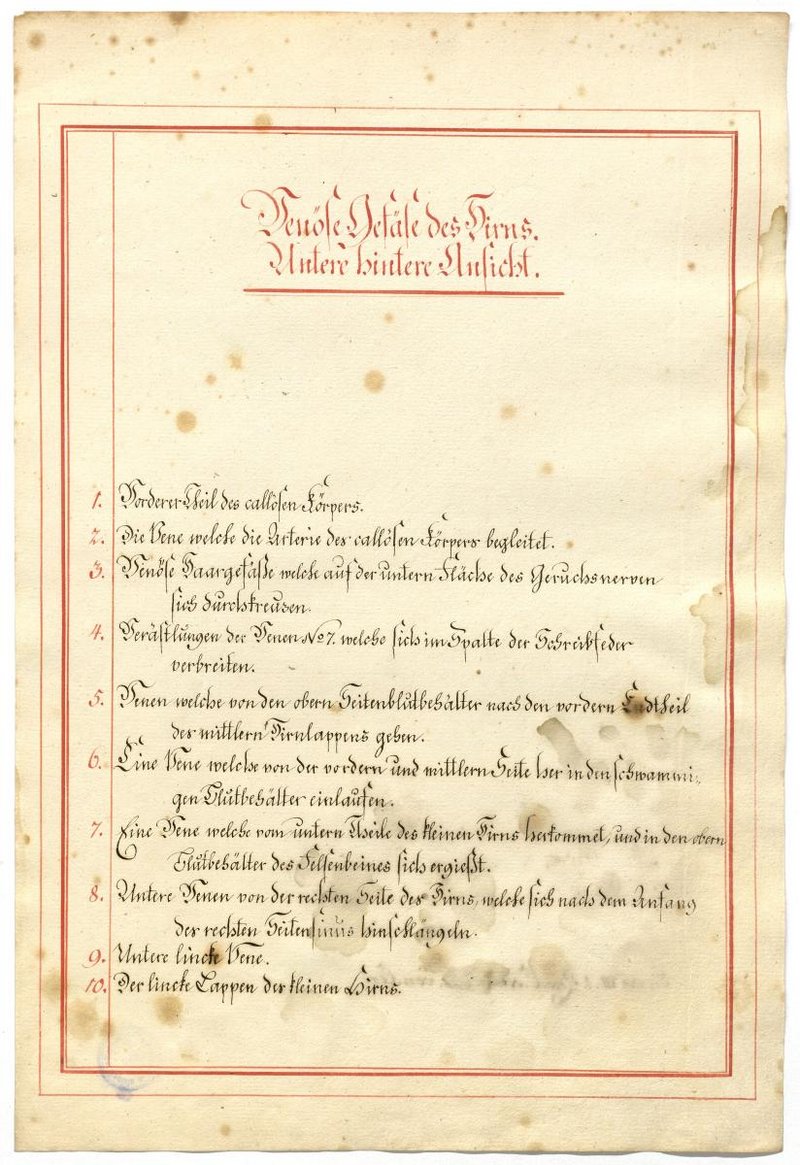 Venöse Gefäse des Hirns.
Untere hintere Ansicht.
1. Vorderer Theil des callösen Körpers.
2. Die Vene welche die Arterie des callösen Körpers begleitet.
3. Venöse Haargefäße welche auf der untern Fläche des Geruchsnerven
sich durchkreuzen.
4. Verästlungen der Venen No 7. welche sich im Spalte der Schreibfeder
verbreiten.
5. Venen welche von den obern Seitenblutbehälter nach den vordern Endtheil
des mittlern Hirnlappens gehen.
6. Eine Vene welche von der vordern und mittlern Seite her in den schwammi-
gen Blutbehälter einlaufen.
7. Eine Vene welche vom untern Theile des kleinen Hirns herkommet, und in den obern
Blutbehälter des Felsenbeines sich ergießt.
8. Untere Venen von der rechten Seite des Hirns, welche sich nach dem Anfang
des rechten Seitensinus hinschlängeln.
9. Untere lincke Vene.
10. Der lincke Lappen des kleinen Hirns.